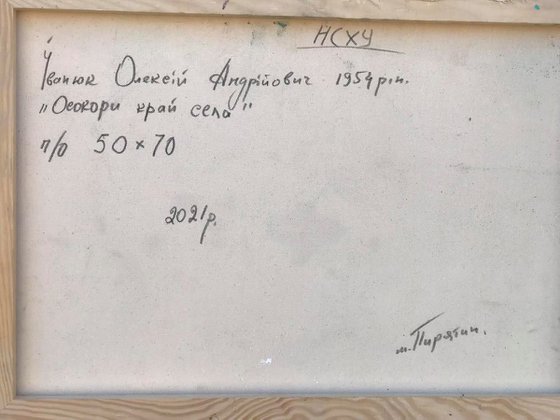 НСХУ
Іванюк Олексій Андрійович 1954 р.н.
"Осокори край села"
п/о 50 × 70
2021р.
м. Пирятин.